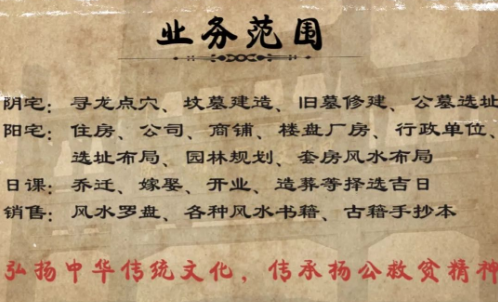 业务范围
阴宅：寻龙点穴、坟墓建造、旧墓修建、公墓选址
阳宅：住房、公司、商铺、楼盘厂房、行政单位、
选址布局、园林规划、套房风水布局
日课：乔迁、嫁娶、开业、造葬等择选吉日
销售：风水罗盘、各种风水书籍、古籍手抄本
弘扬中华传统文化，传承杨公救贫精神